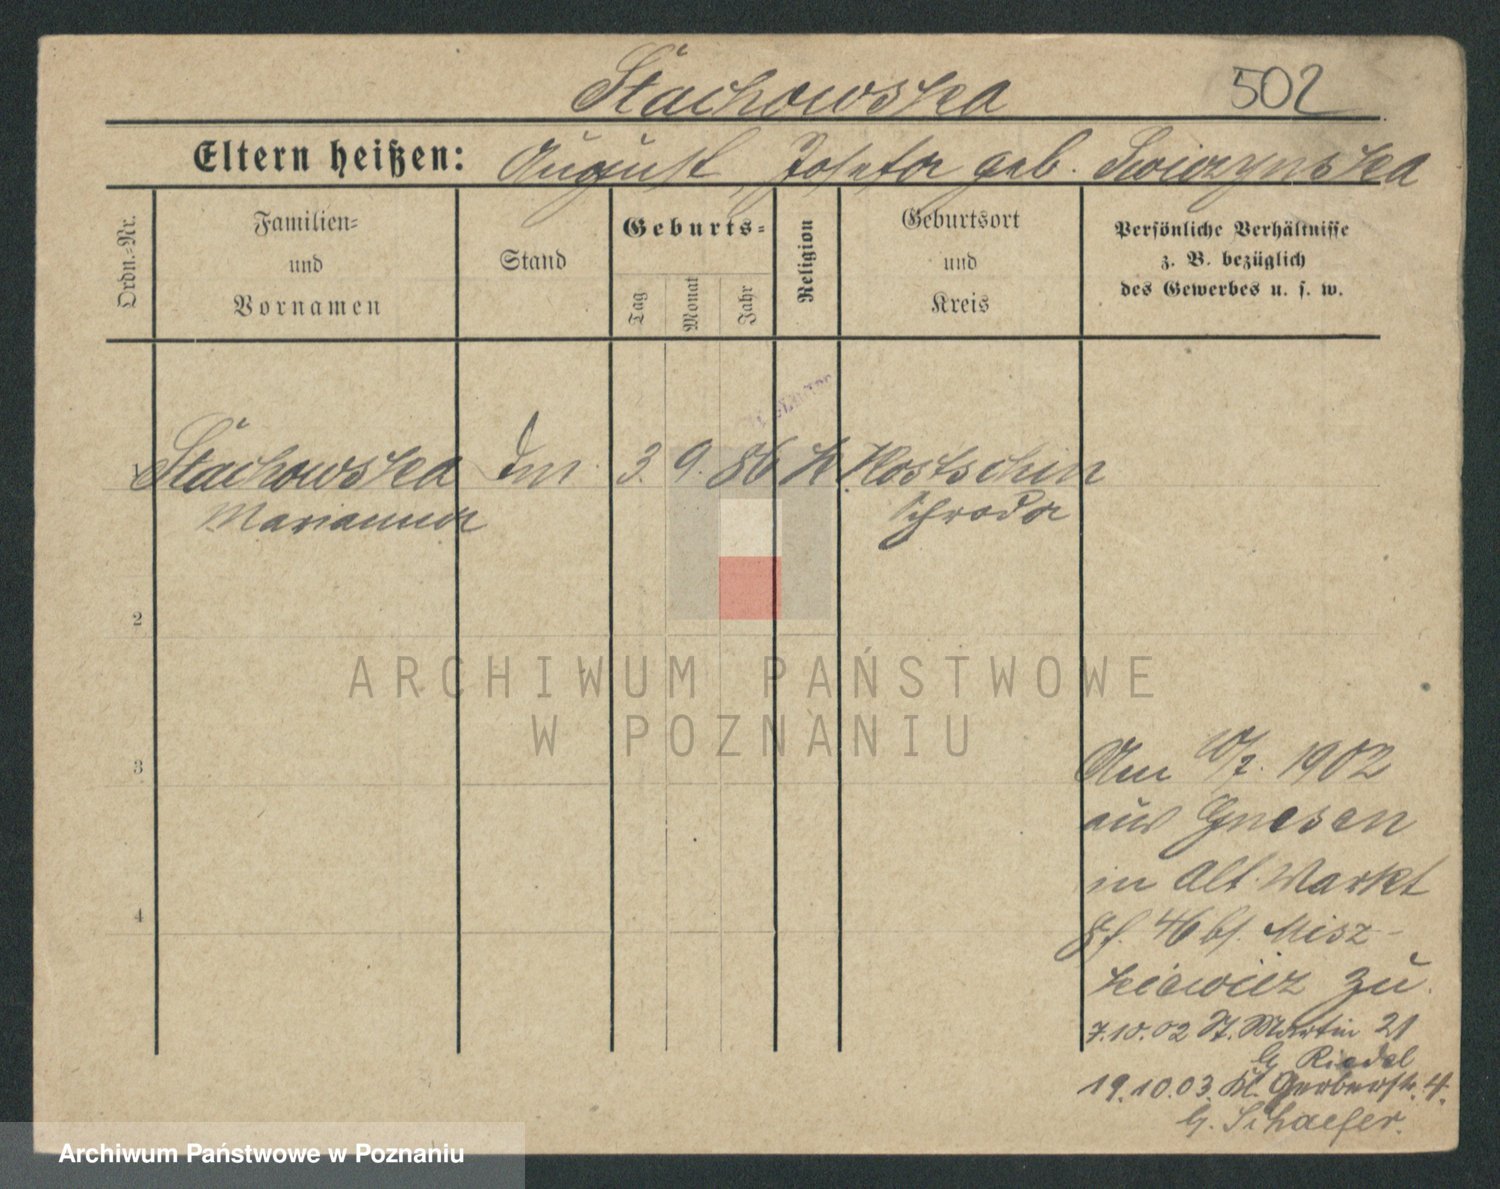 Stachowska 502
Eltern heißen: August, Josefa geb. Swierzynska
Ordn.-Nr.
Familien-
und
Vornamen
Stand
Geburts-
Tag
Monat
Jahr
Religion
Geburtsort
und
Kreis
Persönliche Verhältnisse
z. B. bezüglich
des Gewerbes u. s. w.
Stachowska 3. 9. 86 k Kostschin
Marianna Schroda
2
ARCHIWUM PAŃSTWOWE
W POZNANIU
3
Am 10/7. 1902
aus Gnesen
in Alt. Markt
46 bf. Misz-
kiewicz zu.
4
7.10.02 St. Martin 21
b. Riedel
19.10.03. Kl. Gerberstr. 4.
b. Schaefer.
Archiwum Państwowe w Poznaniu